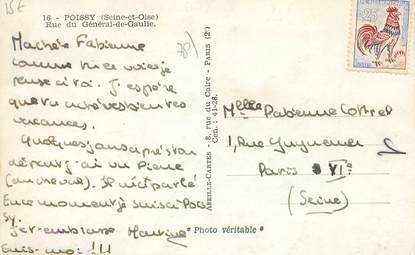 15€
16 - POISSY (Seine-et-Oise)
Rue du Général-de-Gaulle.
78
Ma chère Fabienne
comme tu le vois je
pense à toi. J'espère
que tu as de bientes
vacances.
Quelques jours après ton
départ j'ai vu Pierre
(un cheval). Il m'a parlé
En ce moment je suis à Pois
sy.
je t'embrasse Martine
Ecris-moi !!!
ABEILLE-CARTES - 8, rue du Caire - Paris (2e)
Cen. : 41-28.
"Photo véritable"
Melle Fabienne Cottrel
1, Rue Guynemer
Paris VIe
(Seine)